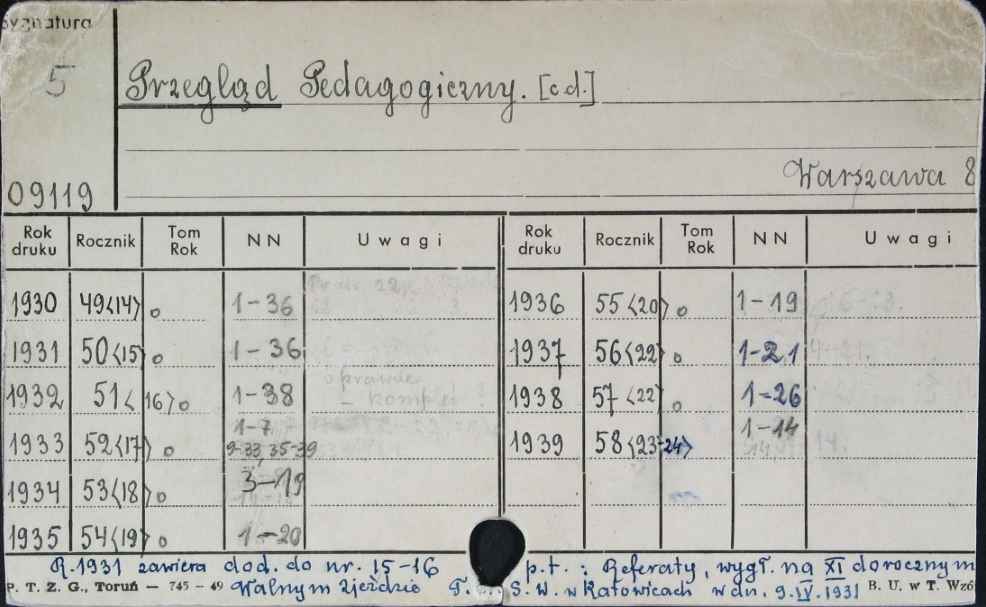 Sygnatura
5
Przegląd Pedagogiczny. [c.d.]
Warszawa 8
09119
Rok druku Rocznik Tom Rok NN Uwagi Rok druku Rocznik Tom Rok NN Uwagi
1930 49<14> o 1-36 1936 55<20> o 1-19
1931 50<15> o 1-36 1937 56<22> o 1-21
1932 51<16> o 1-38 1938 57<22> o 1-26
1933 52<17> o 1-7 9-33, 35-39 1939 58<23-24> 1-14
1934 53<18> o 3-19
1935 54<19> o 1-20
R.1931 zawiera dod. do nr. 15-16 p.t.: Referaty, wygł. na XI dorocznym
P. T. Z. G., Toruń — 745 - 49 Walnym Zjeździe S. W. w Katowicach w dn. 9.IV.1931 B. U. w T. Wzó